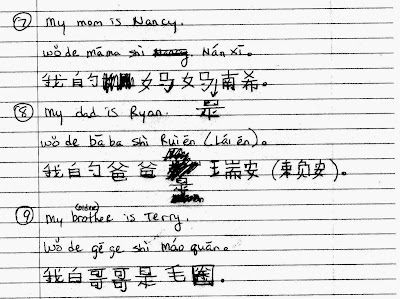 ⑦ My mom is Nancy.
wǒ de māma shì Nán xī。
我的妈妈是南希。
⑧ My dad is Ryan.
wǒ de bā ba shì Ruì ēn (Lái ēn)。
我的爸爸是瑞安 (赖安)。
⑨ My (older) brother is Terry.
wǒ de gē ge shì máo quān.
我白哥哥是毛圈.